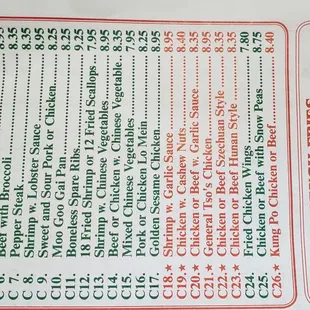 C 6. Beef with Broccoli 8.35
C 7. Pepper Steak 8.35
C 8. Shrimp w. Lobster Sauce 8.95
C 9. Sweet and Sour Pork or Chicken 8.35
C10. Moo Goo Gai Pan 8.25
C11. Boneless Spare Ribs 9.25
C12. 18 Fried Shrimp or 12 Fried Scallops 7.95
C13. Shrimp w. Chinese Vegetables 8.95
C14. Beef or Chicken w. Chinese Vegetable 8.35
C15. Mixed Chinese Vegetables 7.95
C16. Pork or Chicken Lo Mein 8.25
C17. Golden Sesame Chicken 8.95
C18.★ Shrimp w. Garlic Sauce 8.95
C19.★ Chicken w. Cashew Nuts 8.40
C20.★ Chicken or Beef w. Garlic Sauce 8.35
C21.★ General Tso's Chicken 8.95
C22.★ Chicken or Beef Szechuan Style 8.35
C23.★ Chicken or Beef Hunan Style 8.35
C24. Fried Chicken Wings 7.80
C25. Chicken or Beef with Snow Peas 8.75
C26.★ Kung Po Chicken or Beef 8.40